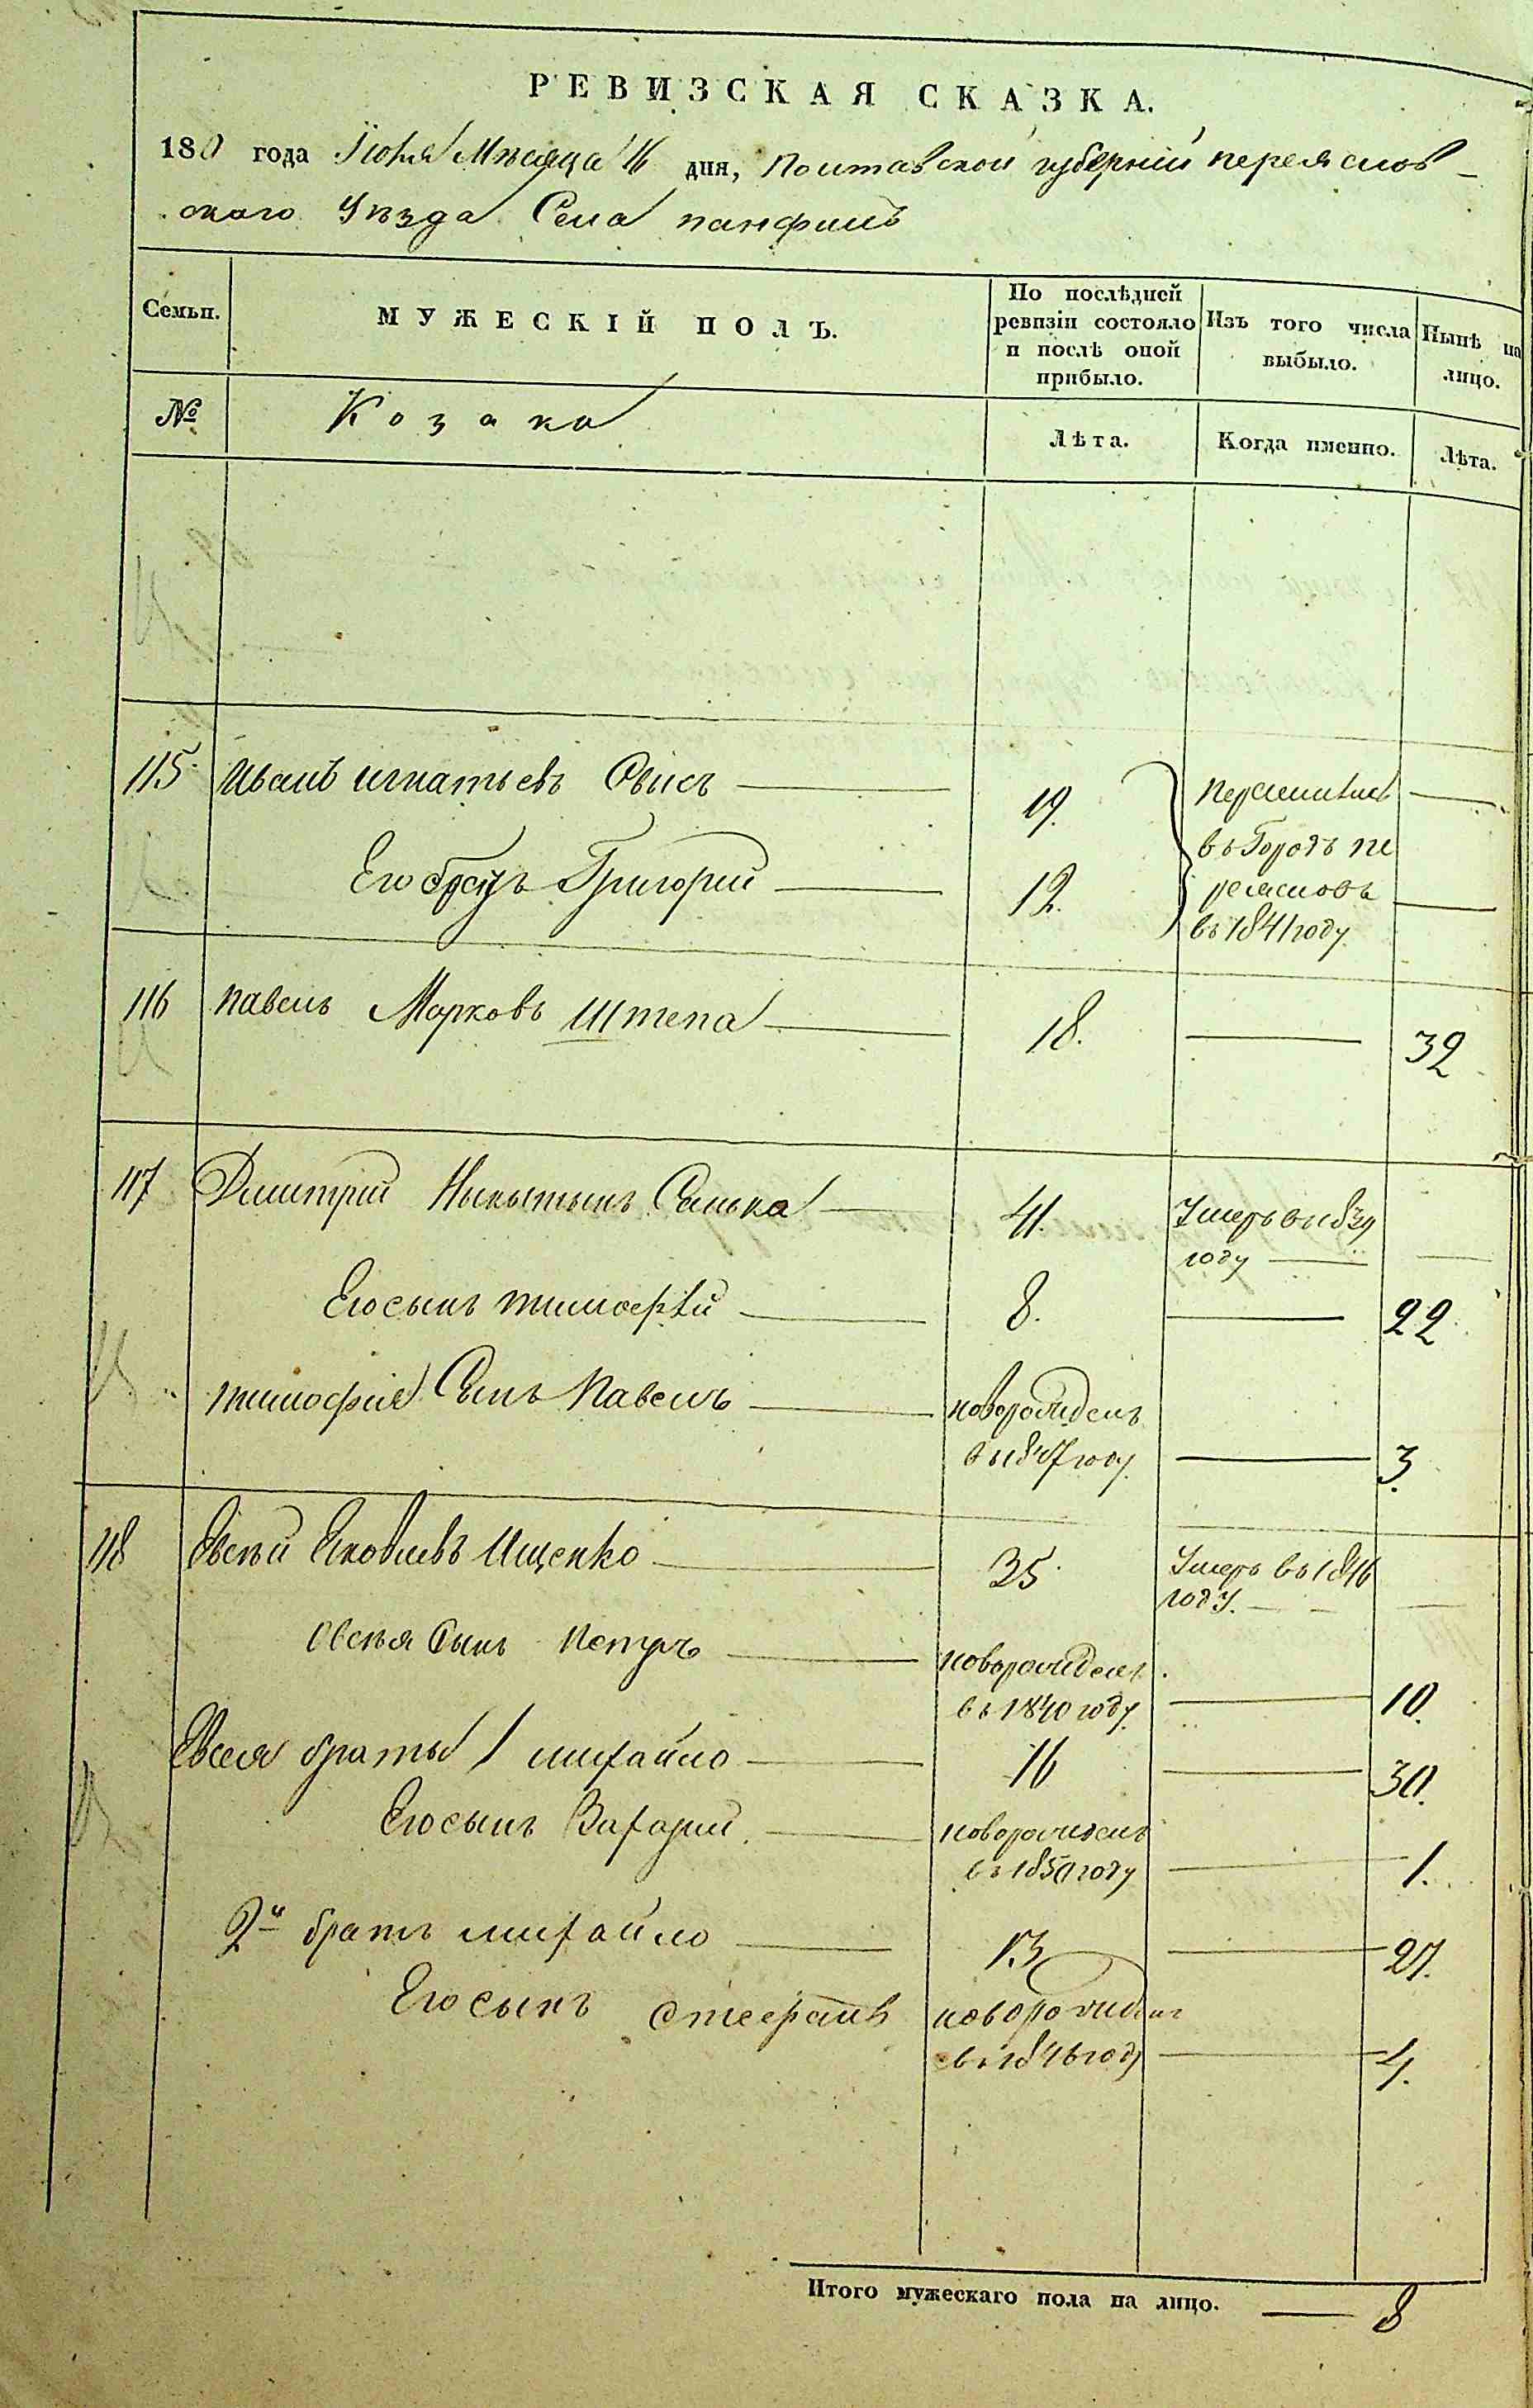 РЕВИЗСКАЯ СКАЗКА.
1850 года Іюня Мѣсяца 16 дня, Полтавской губерніи переяслов-
ского Уѣзда Села панфилъ
Семьи.
МУЖЕСКІЙ ПОЛЪ.
По послѣдней ревизіи состояло и послѣ оной прибыло.
Изъ того числа выбыло.
Нынѣ на лицо.
№
Козаки
Лѣта.
Когда именно.
Лѣта.
115 Иванъ игнатьевъ 19. перечислены
въ Городъ пе
Его братъ Григорий 12. реясловъ
въ 1841 году
116 павелъ Марковъ Штепа 18. 32
117 Дмитрий Ныкытынъ Санька 41. Умеръ в 1839
году
Его сынъ тимофѣй 8. 22
тимофея Сынъ Павелъ новорожденъ
в 1847 году 3.
118 Евсѣй Яковлевъ Ищенко 35 Умеръ въ 1846
году.
Овсѣя Сынъ Петръ новорожденъ
въ 1840 году 10.
Евсея братья 1 михайло 16 30.
Его сынъ Захарий новорожденъ
въ 1850 году 1.
2й братъ михайло 13 27.
Его сынъ стефанъ новорожденъ
въ 1846 году 4.
Итого мужескаго пола на лицо. 8